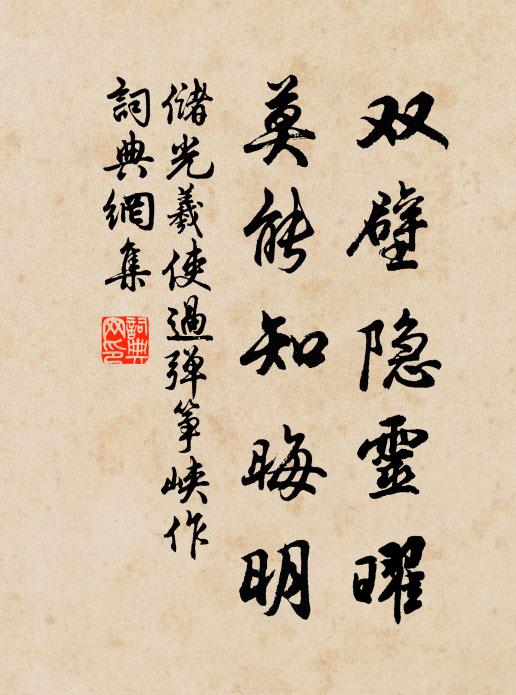 双壁隐靈曜
莫能知晦明
储光羲使過弹筝峡作
詞典網集
詞典网印